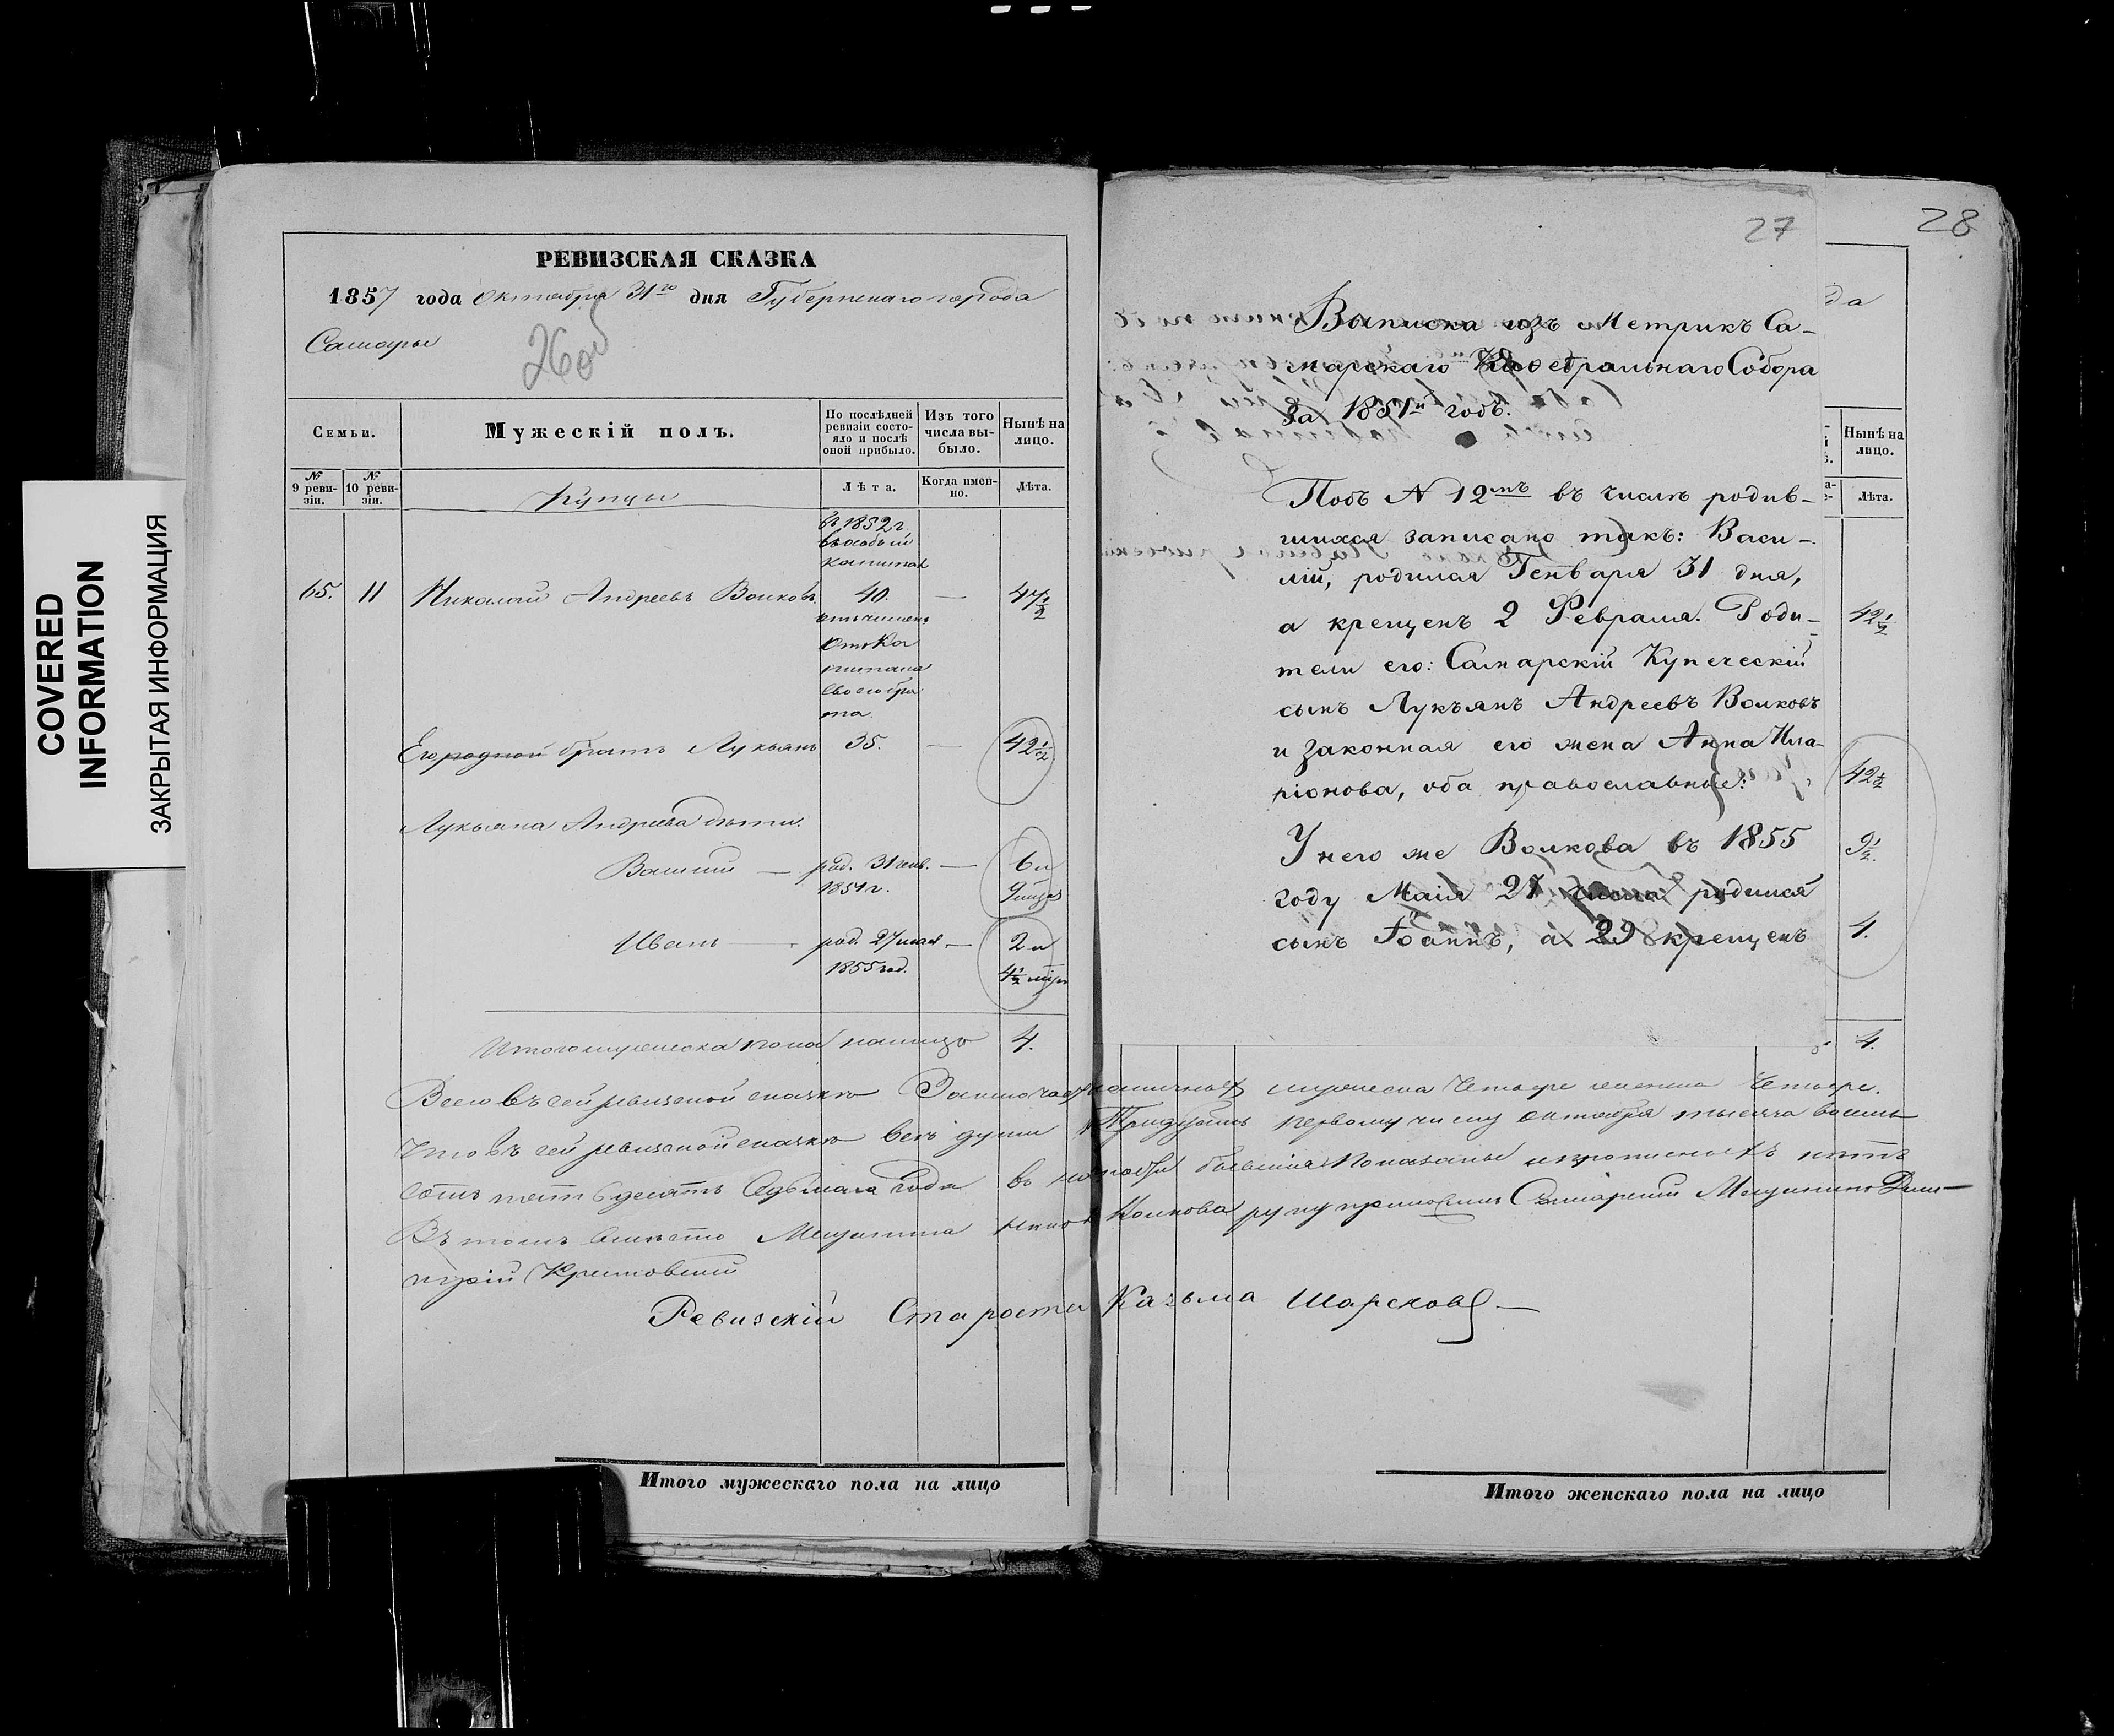 COVERED
INFORMATION
ЗАКРЫТАЯ ИНФОРМАЦИЯ
РЕВИЗСКАЯ СКАЗКА
1857 года Октября 31го дня Губернскаго города
Самары
Семьи.
Мужескій полъ.
По послѣдней ревизіи состояло и послѣ оной прибыло.
Изъ того числа выбыло.
Нынѣ на лицо.
№ 9 ревизіи.
№ 10 ревизіи.
Купцы
Лѣта.
Когда именно.
Лѣта.
въ 1852 г.
въ особый
капитал
65. 11 Николай Андреевъ Волковъ. 40. — 47½
отъ ка
питала
своего бра
та.
Его родной братъ Лукьянъ 35. — 42½
Лукьяна Андреева дѣти.
Василий — род. 31 генв. — 6 л
1851 г. 9 мцов
Иванъ — род. 27 мая — 2 л
1855 год. 4½ мцов
Итого мужеска пола налицо 4.
Всего въ сей ревизской сказкѣ наличныхъ мужеска четыре женска четыре.
Что въ сей ревизской сказкѣ всѣ души Тридцать первому числу октября тысяча восемь
сотъ пятьдесятъ седьмаго года въ показаны
Въ томъ вмѣсто Мещанина Волкова руку приложилъ Самарский Мещанинъ Дми-
трій
Ревизскій Староста Казьма Шарсков
Итого мужескаго пола на лицо
27
28
да
Выписка изъ Метрикъ Са-
марскаго Каѳедральнаго Собора
за 1851й годъ.
Подъ № 12мъ въ числѣ родив-
шихся записано такъ: Васи-
лій, родился Генваря 31 дня,
а крещенъ 2 Февраля. Роди-
тели его: Самарскій Купеческій
сынъ Лукьянъ Андреевъ Волковъ
и законная его жена Анна Ила-
ріонова, оба православные.
У него же Волкова въ 1855
году Маія 27 числа родился
сынъ Іоаннъ, а 29 крещенъ
Нынѣ на лицо.
Лѣта.
42½
42½
9½.
1.
4.
Итого женскаго пола на лицо